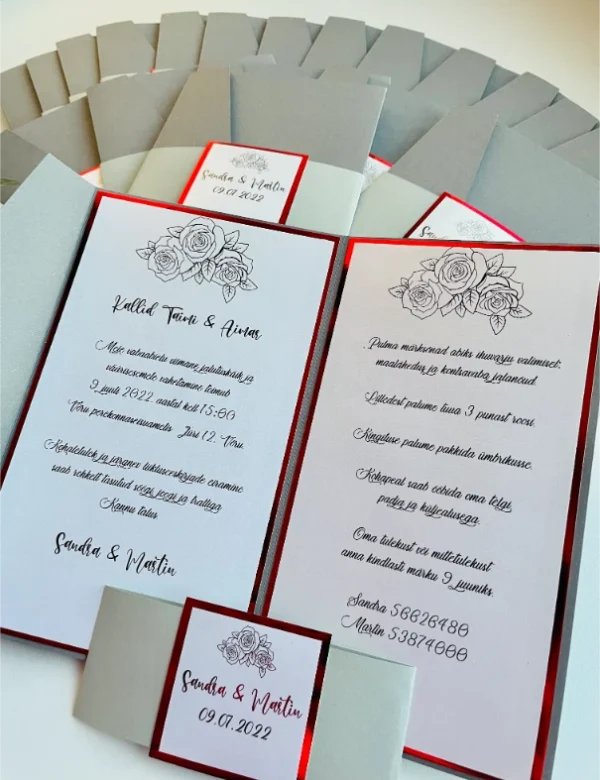 Sandra & Martin
09.07.2022
Kallid Taimi & Aimar
Meie vabaabielu viimane jalutuskäik ja
väärisesemete vahetamine toimub
9 juuli 2022 aastal kell 15:00
Võru perekonnaseisuametis Jüri 12, Võru.
Kohaletulek ja järgnev liikluseeskirjade eiramine
saab rohkelt tasutud söögi, joogi ja tralliga
Kannu talus
Sandra & Martin
Pulma märksõnad abiks ihuvarju valimisel:
maalähedus ja kontsavaba jalanõud.
Lilledest palume tuua 3 punast roosi.
Kingituse palume pakkida ümbrikusse.
Kohapeal saab ööbida oma telgi,
padja ja küljealusega.
Oma tulekust või mittetulekust
anna kindlasti märku 9 juuniks.
Sandra 56626480
Martin 53874000
Sandra & Martin
09.07.2022